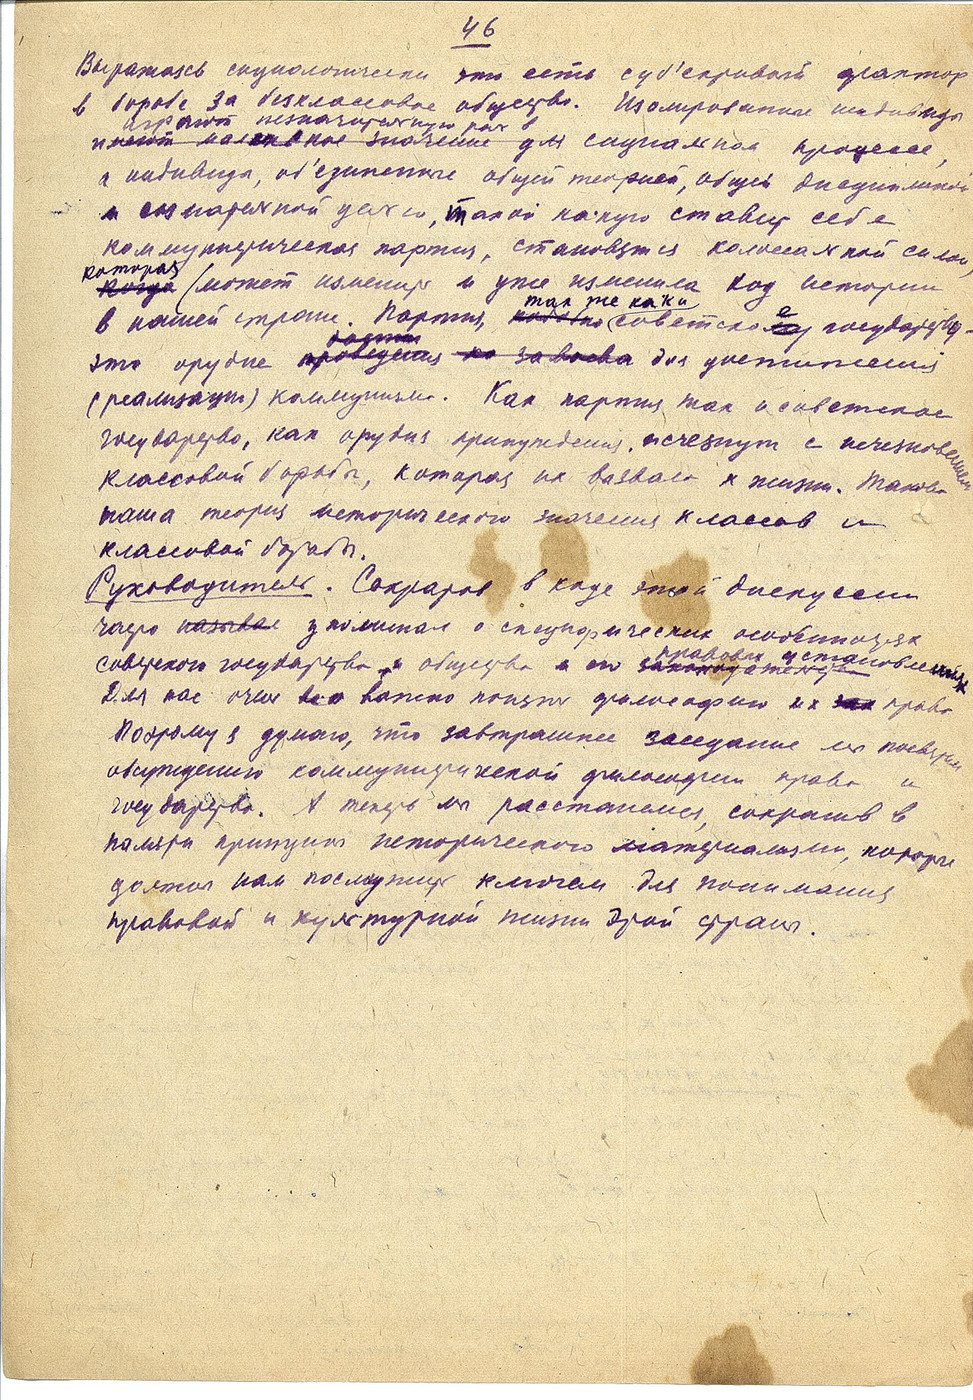 46
Выражаясь социологически это есть суб'ективный фактор
в борьбе за безклассовое общество. Изолированные индивиды
играют незначительную роль в
имеют маленькое значение для социальном процессе,
а индивиды, об'единенные общей теорией, общей дисциплиной
и сознательной целью, такой какую ставит себе
коммунистическая партия, становятся колоссальной силой,
которая
когда (может изменить и уже изменила ход истории
в нашей стране. Партия,
так же как и
советское государство –
это орудие проведения для достижения
(реализации) коммунизма. Как партия так и советское
государство, как орудия принуждения, исчезнут с исчезновением
классовой борьбы, которая их вызвала к жизни. Такова
наша теория исторического значения классов и
классовой борьбы.
Руководитель. Сократов в ходе этой дискуссии
часто называл упоминал о специфических особенностях
правовых установлениях
советского государства и общества и его законодательства
Для нас очень важно понять философию их права
Поэтому я думаю, что завтрашнее заседание мы посвятим
обсуждению коммунистической философии права и
государства. А теперь мы расстанемся, сохранив в
памяти принципы исторического материализма, которые
должны нам послужить ключем для понимания
правовой и культурной жизни этой страны.